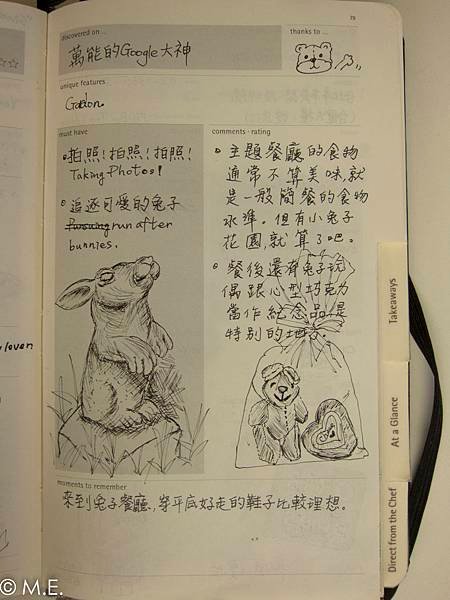 79
discovered on ...
thanks to ...
萬能的Google大神
unique features
Garden.
must have
comments · rating
拍照!拍照!拍照!
Taking Photos!
追逐可愛的兔子
run after
bunnies.
主題餐廳的食物
通常不算美味,就
是一般簡餐的食物
水準。但有小兔子
花園,就算了吧。
餐後還有兔子玩
偶跟心型巧克力
當作紀念品是
特別的地方。
moments to remember
來到兔子餐廳,穿平底好走的鞋子比較理想。
Takeaways
At a Glance
Direct from the Chef
© M.E.